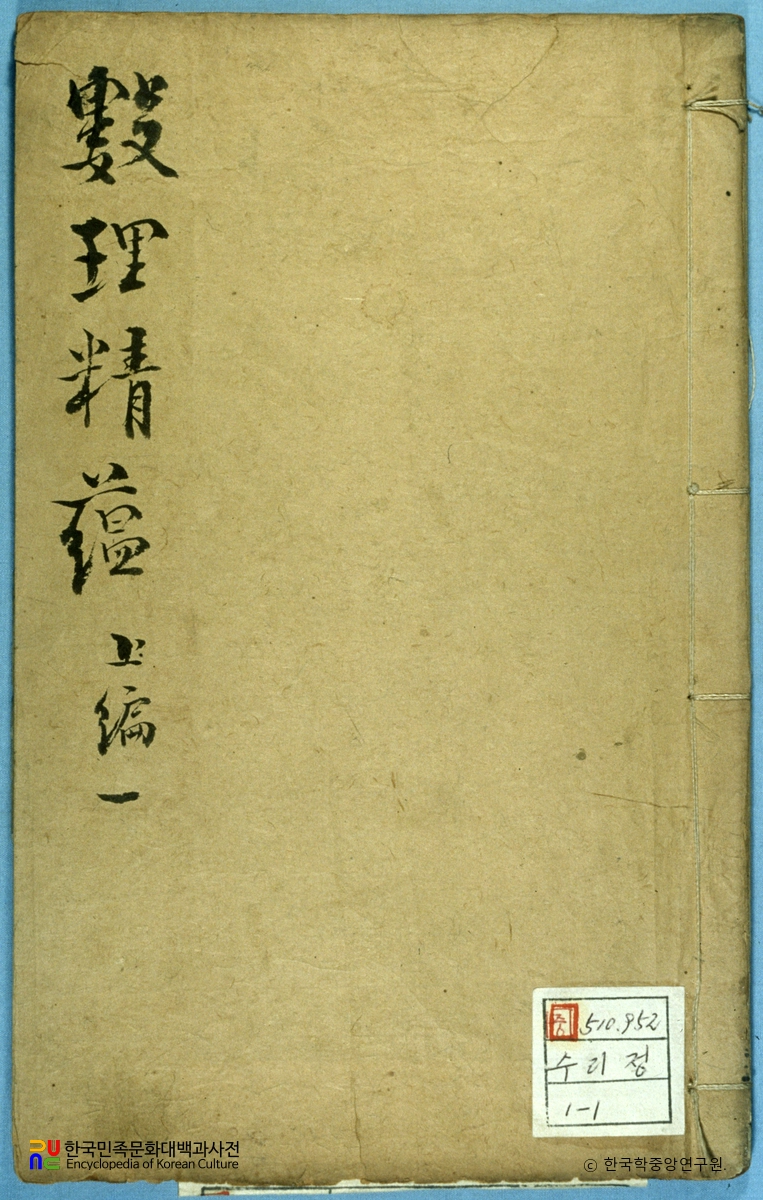 數理精蘊 上編 一
중 510.952
수리정
1-1
한국민족문화대백과사전
Encyclopedia of Korean Culture
© 한국학중앙연구원.